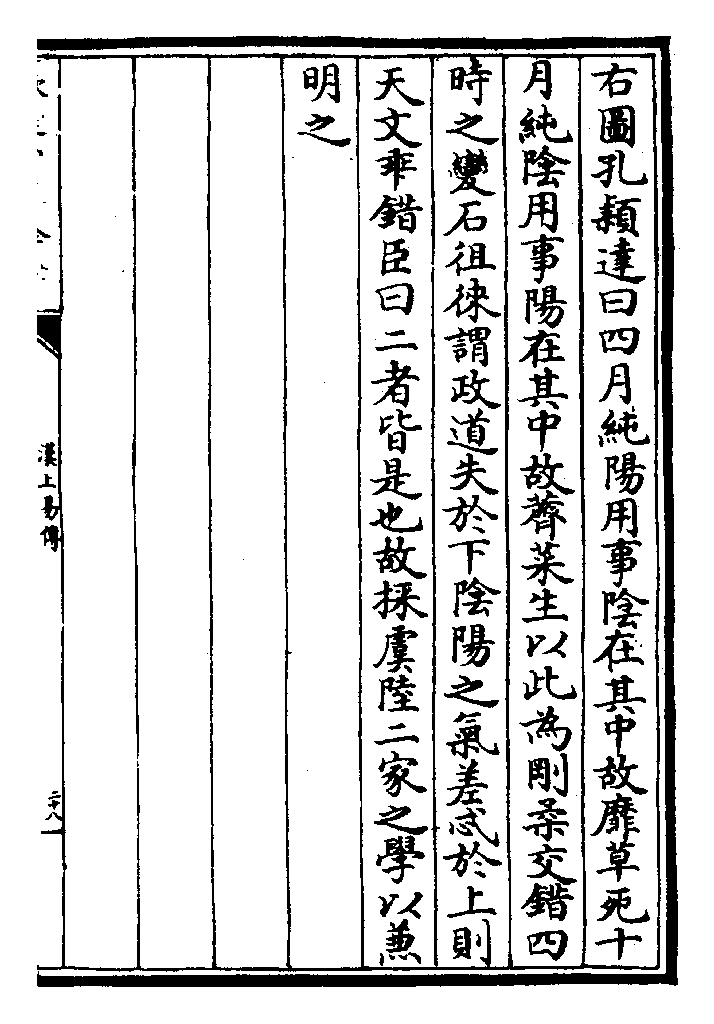 右圖孔頴達曰四月純陽用事陰在其中故靡草死十
月純陰用事陽在其中故薺菜生以此為剛柔交錯四
時之變石徂徠謂政道失於下陰陽之氣差忒於上則
天文乖錯臣曰二者皆是也故採虞陸二家之學以兼
明之
漢上易傳
二十八